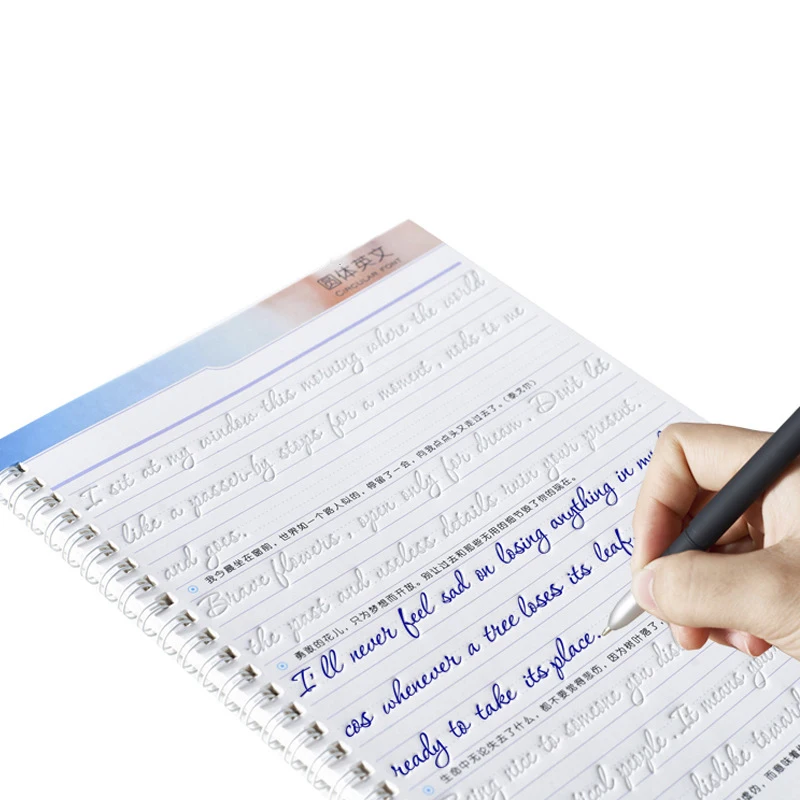 圆体英文
CIRCULAR FONT
I sit at my window this morning where the world
like a passer-by stops for a moment, nods to me
and goes.
我今晨坐在窗前，世界如一个路人似的，停留了一会，向我点点头又走过去了。(泰戈尔)
Brave flowers, open only for dream. Don't let
the past and useless details ruin your present.
勇敢的花儿，只为梦想而开放。别让过去和那些无用的细节毁了你的现在。
I'll never feel sad on losing anything in my
cos whenever a tree loses its leaf,
ready to take its place.
生命中无论失去了什么，都不要觉得悲伤，因为树叶落了，
Being nice to someone you dis
people. It means you
dislike toward